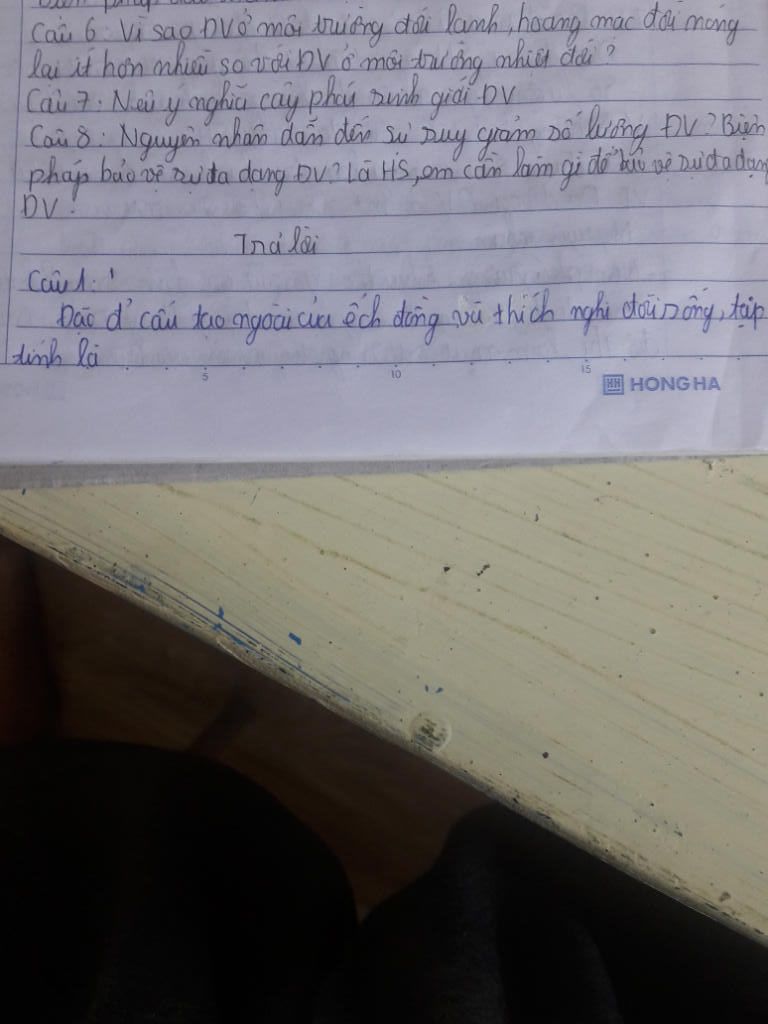 Câu 6: Vì sao ĐVở môi trường đới lạnh, hoang mạc đới nóng
lại ít hơn nhiều so với ĐV ở môi trường nhiệt đới?
Câu 7: Nêu ý nghĩa cây phát sinh giới ĐV
Câu 8: Nguyên nhân dẫn đến sự suy giảm số lượng ĐV? Biện
pháp bảo vệ sự đa dạng ĐV? Là HS, em cần làm gì để bảo vệ sự đa dạng
ĐV?
Trả lời
Câu 1:
cấu tạo ngoài của ếch đồng và thích nghi đời sống, tập
tính là
5 10 15
HH HONG HA